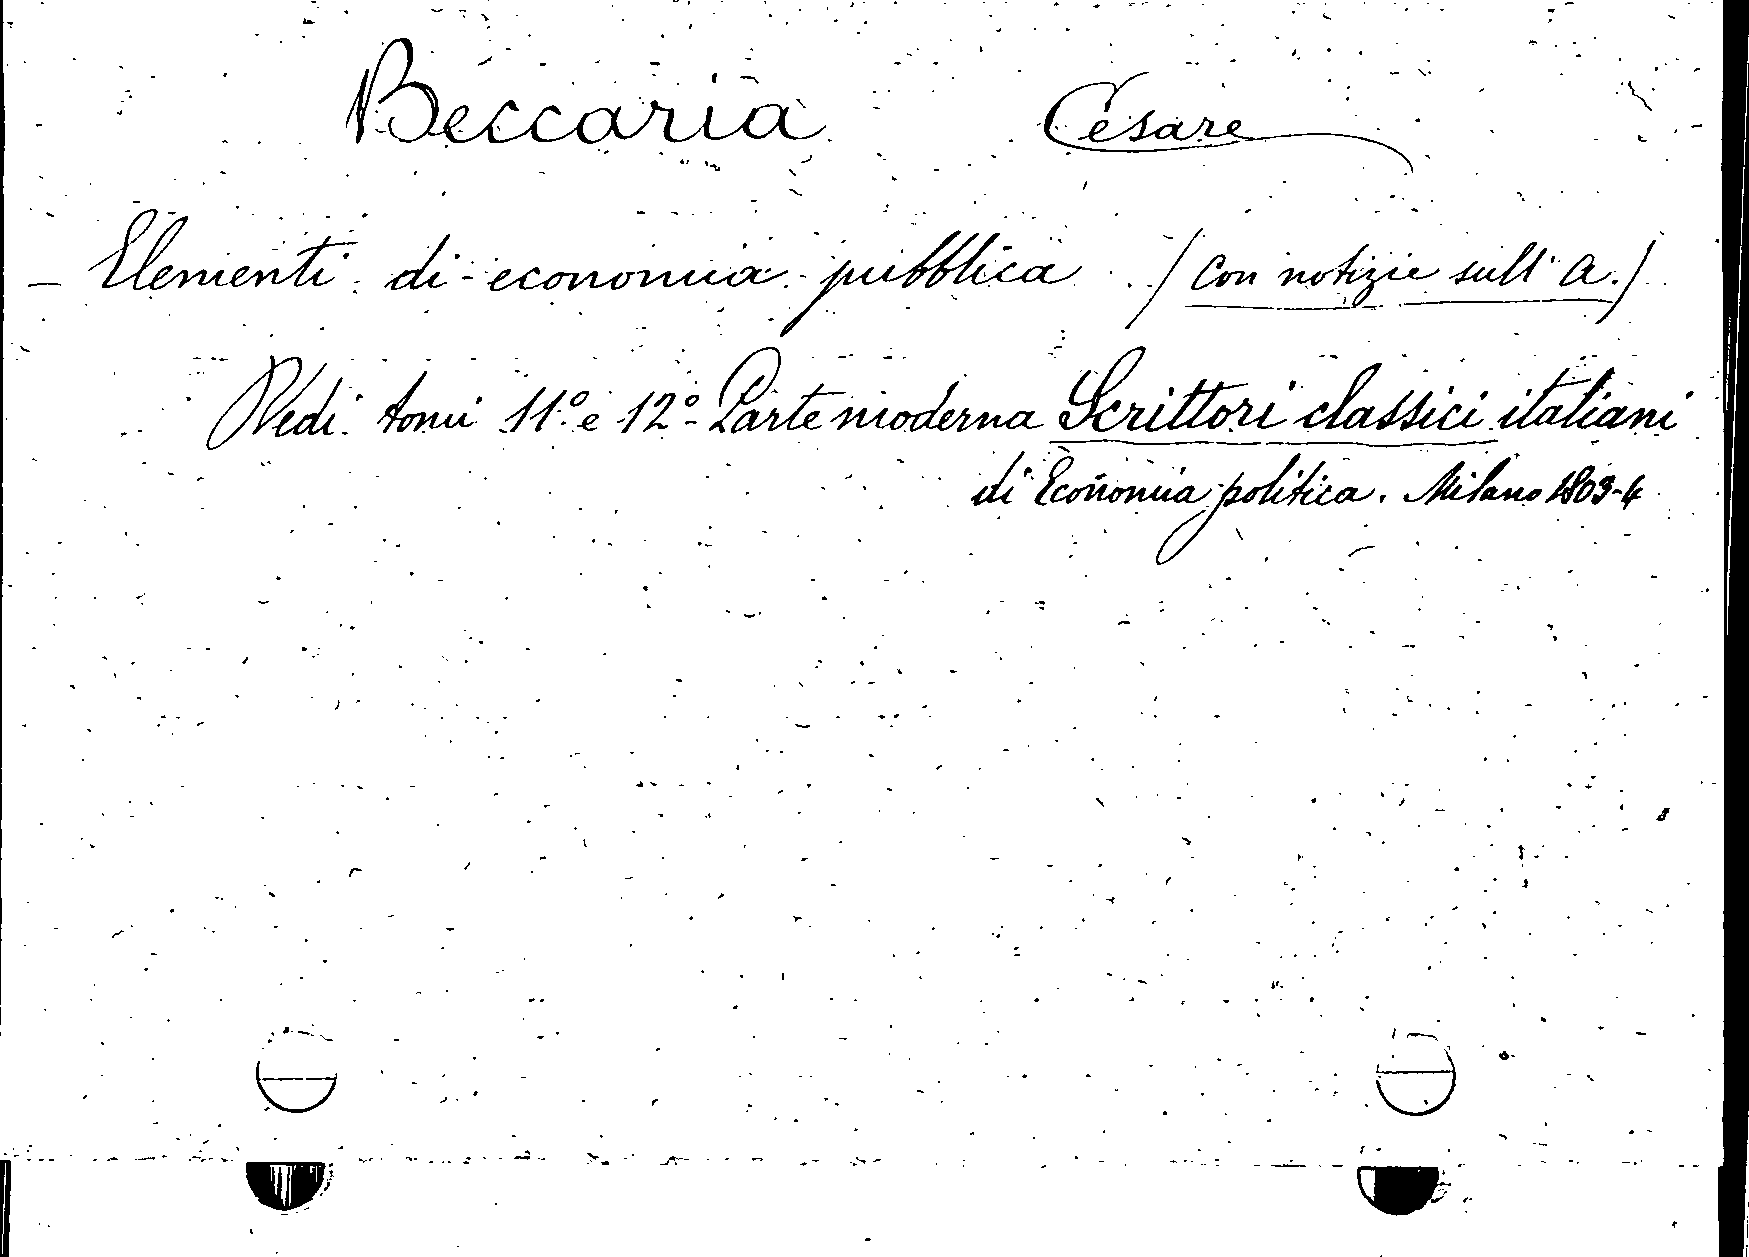 Beccaria Cesare
- Elementi di economia pubblica (con notizie sull'A.)
Vedi tomi 11° e 12° - Parte moderna Scrittori classici italiani
di Economia politica. Milano 1803-4